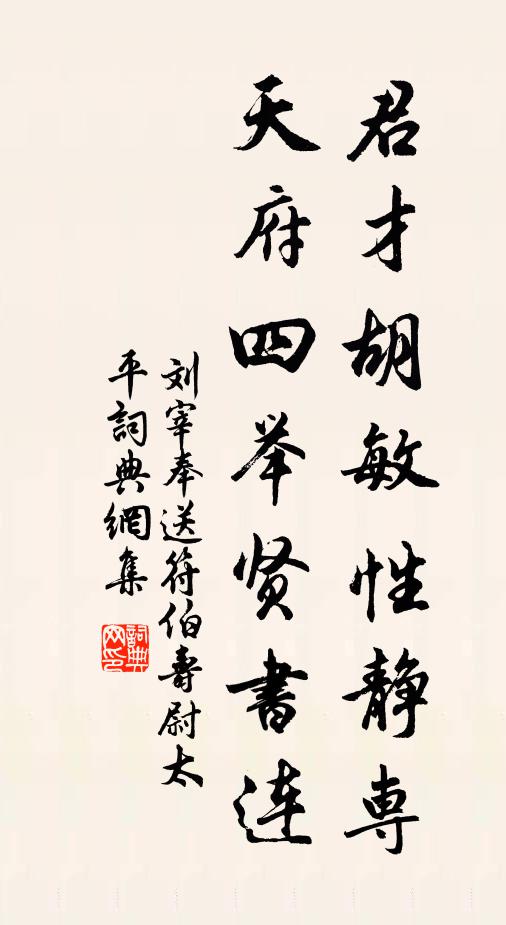 君才胡敏性静専
天府四举贤書连
刘宰奉送符伯壽尉太
平詞典網集
詞典
网印